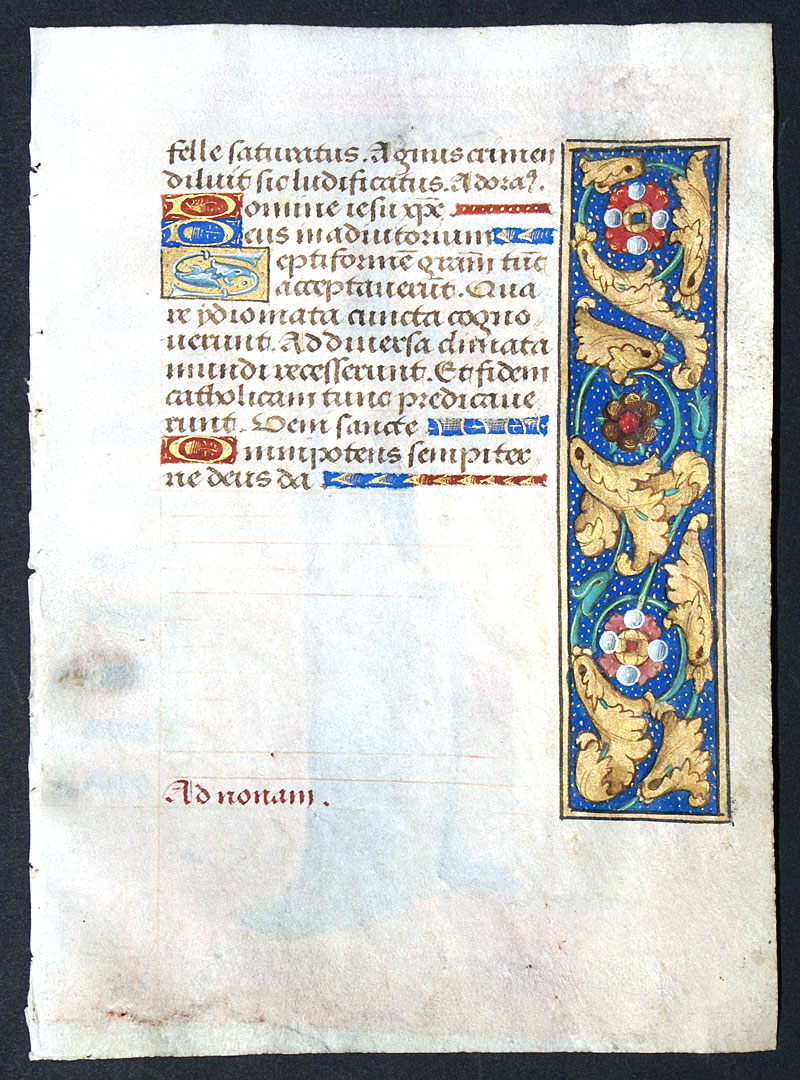 felle saturatus. Agnus crimen
diluit sic ludificatus. Adoraꝰ.
Domine iesu xp̄e
Deus in adiutorium
Septiformē gram̄ tūc
acceperūt. Qua
re ydiomata cuncta cogno
uerunt. Ad diuersa climata
mundi recesserunt. Et fidem
catholicam tunc predicaue
runt. Veni sancte
Omnipotens sempiter
ne deus da
Ad nonam.